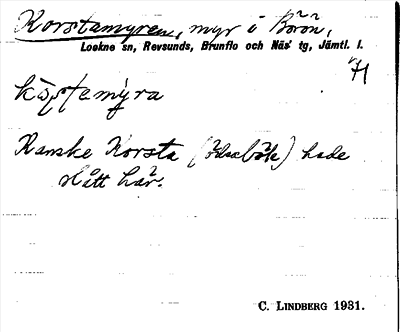 Korstamyren, myr i Börön,
Lockne sn, Revsunds, Brunflo och Näs tg, Jämtl. l.
Kanske Korsta (ödesböle) hade
slått här.
C. LINDBERG 1931.